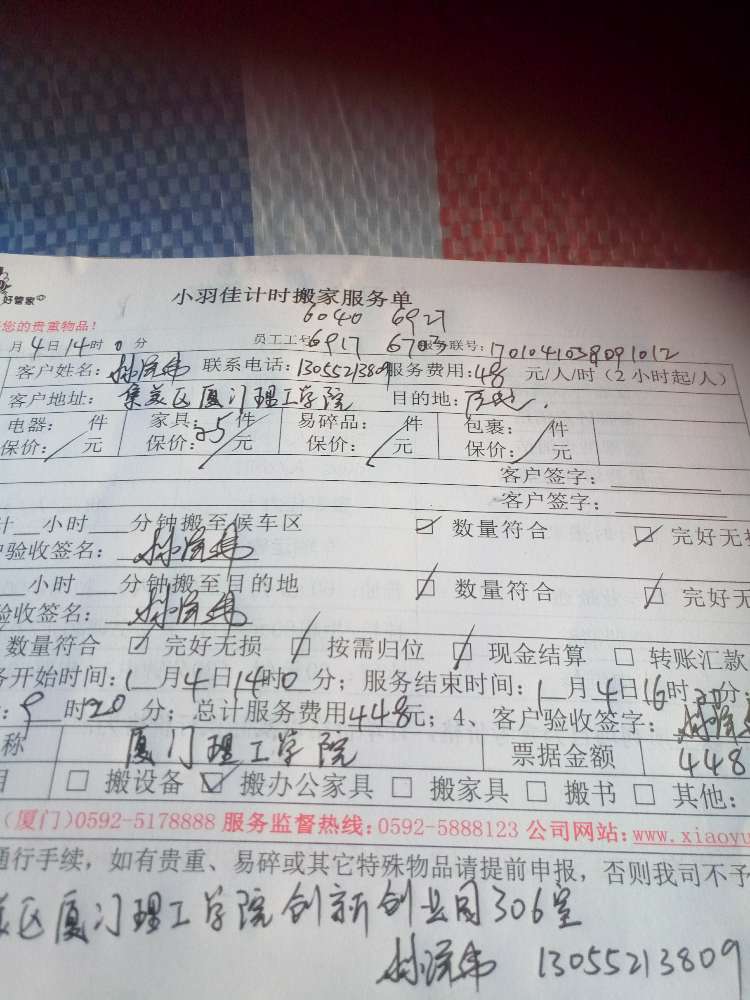 好管家
小羽佳计时搬家服务单
您的贵重物品!
6040 6927
月4日14时0分 员工工号 6917 6703 服务联号:170104103809101 2
客户姓名: 联系电话:13055213809 服务费用:48 元/人/时(2小时起/人)
客户地址:集美区厦门理工学院 目的地:
电器: 件 家具:25件 易碎品: 件 包裹: 件
保价: 元 保价: 元 保价: 元 保价: 元
客户签字:
客户签字:
计 小时 分钟搬至候车区 ☑ 数量符合 ☑ 完好无损
户验收签名:
小时 分钟搬至目的地 ☑ 数量符合 ☑ 完好无
验收签名:
数量符合 ☑ 完好无损 ☑ 按需归位 ☑ 现金结算 □ 转账汇款
务开始时间:1月4日14时0分;服务结束时间:1月4日16时20分;
:9时20分;总计服务费用448元;4、客户验收签字:
称 厦门理工学院 票据金额 448
目 □ 搬设备 ☑ 搬办公家具 □ 搬家具 □ 搬书 □ 其他:
(厦门)0592-5178888 服务监督热线:0592-5888123 公司网站:www.xiaoyu
通行手续,如有贵重、易碎或其它特殊物品请提前申报,否则我司不予
美区厦门理工学院创新创业园306室
13055213809